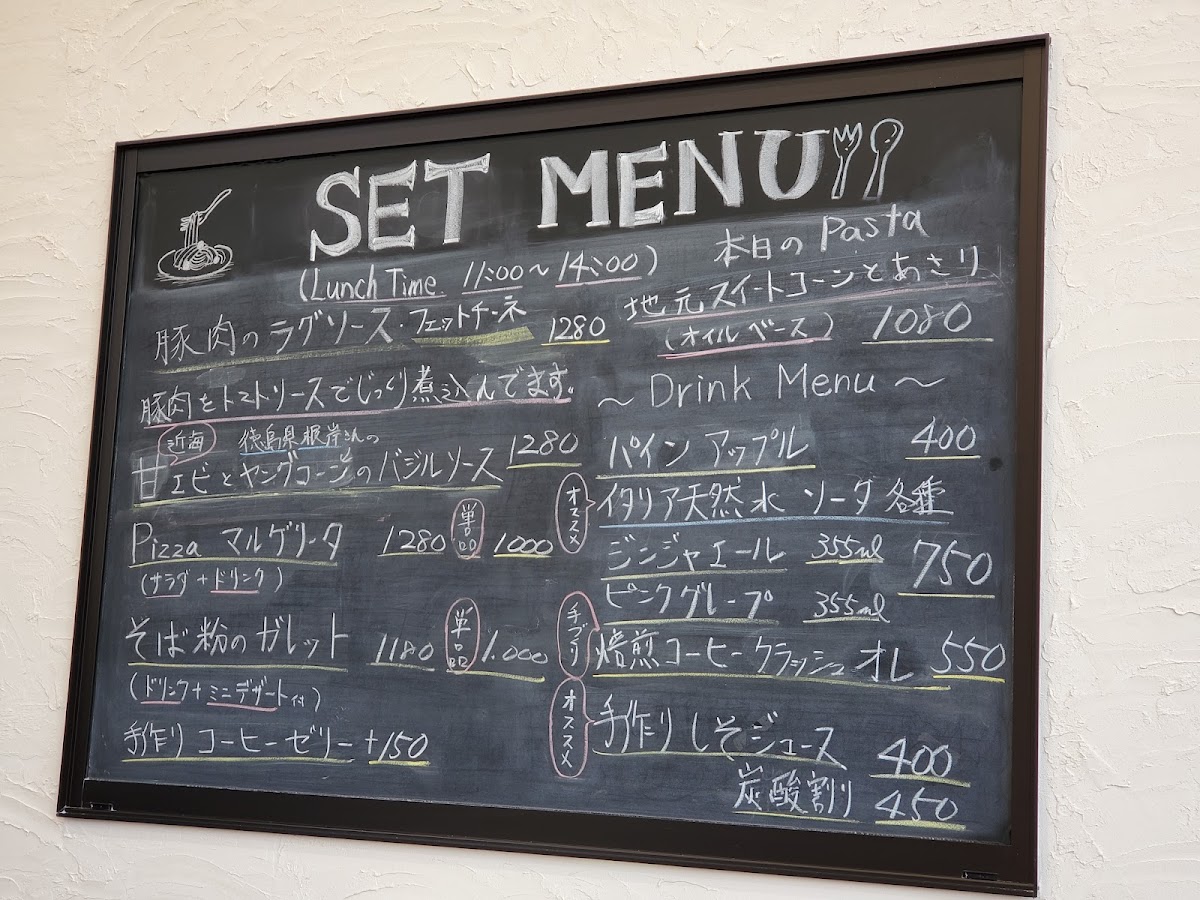 SET MENU
(Lunch Time 11:00〜14:00)
豚肉のラグソース・フェットチーネ 1280
豚肉をトマトソースでじっくり煮込んでます。
近海 徳島県根岸さんの
甘エビとヤングコーンのバジルソース 1280
Pizza マルゲリータ 1280 単品 1000
(サラダ+ドリンク)
そば粉のガレット 1180 単品 1.000
(ドリンク+ミニデザート付)
手作りコーヒーゼリー +150
本日のPasta
地元スイートコーンとあさり
(オイルベース) 1080
〜 Drink Menu 〜
パインアップル 400
オススメ イタリア天然水ソーダ各種
ジンジャエール 355ml 750
ピンクグレープ 355ml
手づくり 焙煎コーヒークラッシュオレ 550
オススメ 手作りしそジュース 400
炭酸割り 450